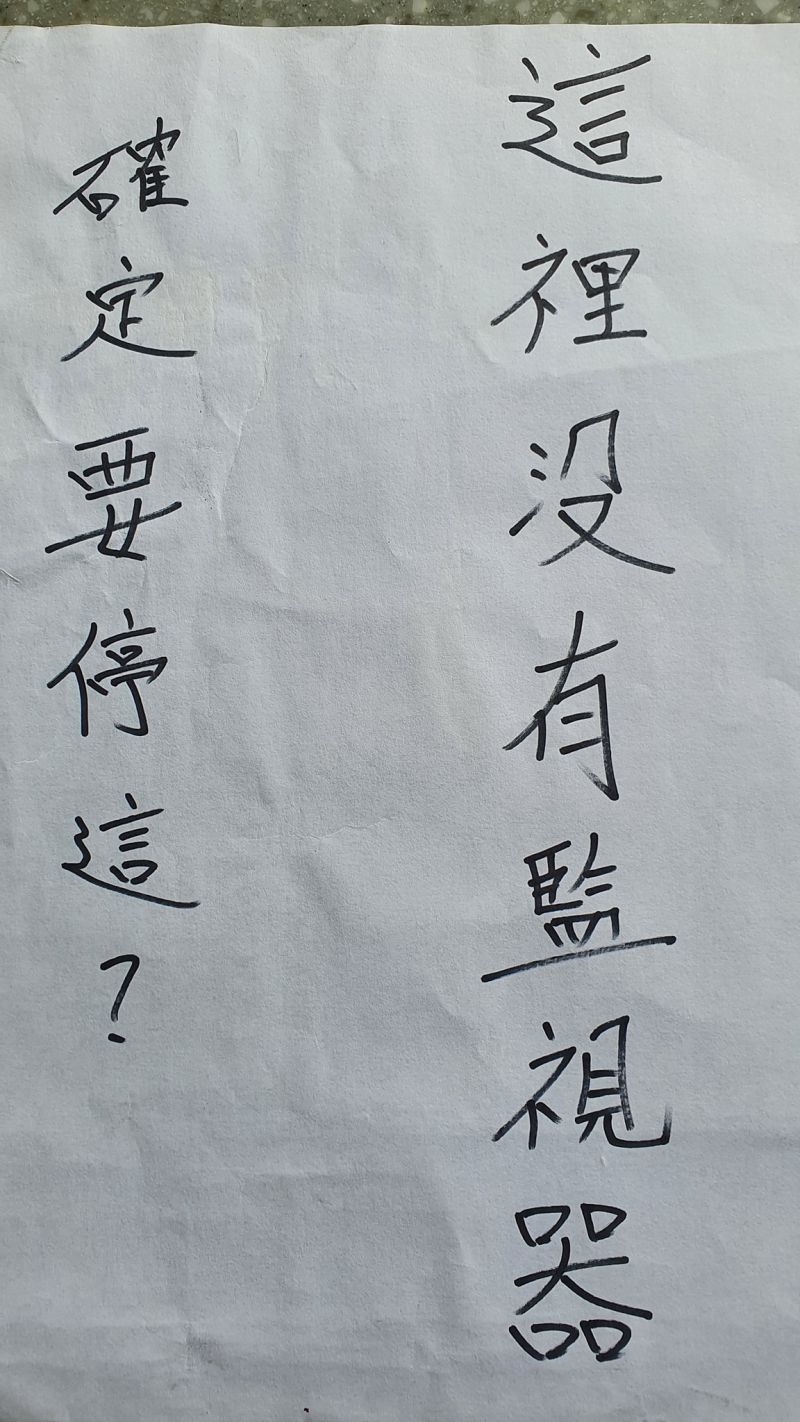 這裡没有監視器
確定要停這?